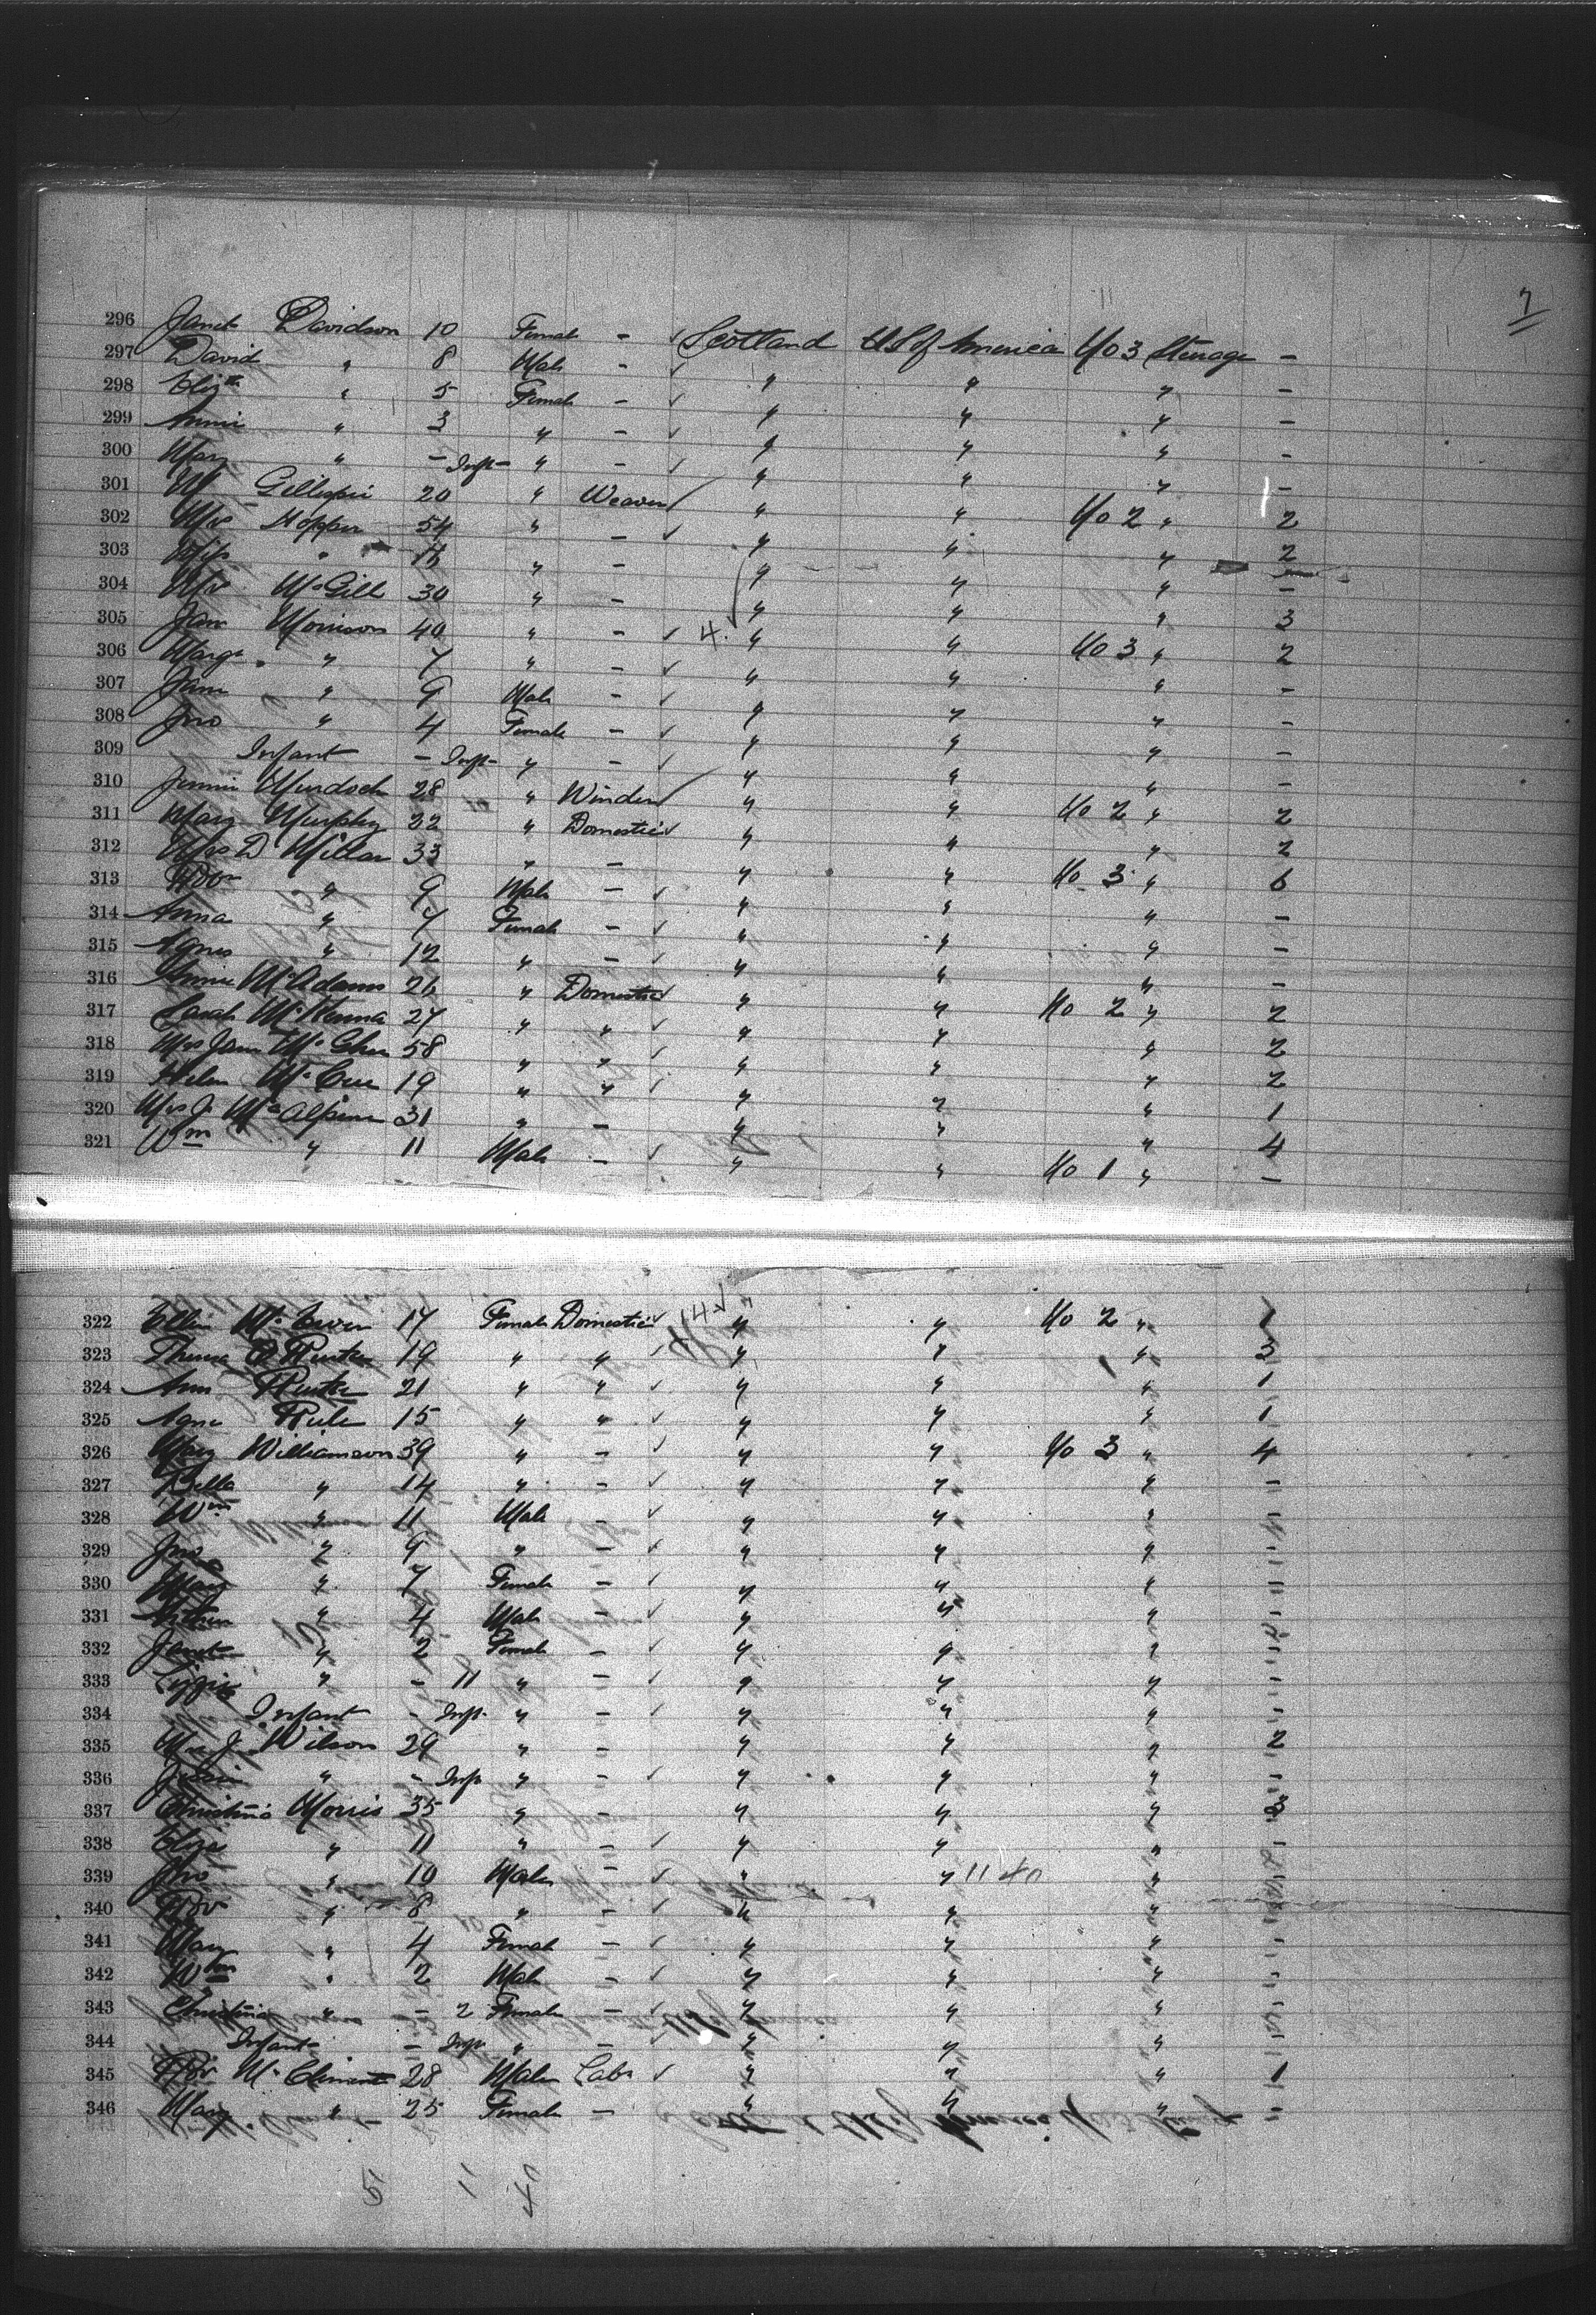 7
296 Janet Davidson 10 Female - ✓ Scotland US of America No 3 Steerage -
297 David " 8 Male - ✓ " " " -
298 Elizth " 5 Female - ✓ " " " -
299 Annie " 3 " - ✓ " " " -
300 Mary " - Inft - " - ✓ " " " -
301 Gillespie 20 " Weaver ✓ " " No 2 " 2
302 Mrs Hopper 54 " - ✓ " " " 2
303 Miss " " - " " " -
304 Mrs McGill 30 " - " " " 3
305 Jane Morrison 40 " - ✓ 4 ✓ " " No 3 " 2
306 Margt " 7 " - ✓ " " " -
307 Jam " 9 Male - ✓ " " " -
308 Jno " 4 Female - ✓ " " " -
309 Infant - Inft - " - ✓ " " " -
310 Jennie Murdoch 28 " Winder ✓ " " No 2 " 2
311 Mary Murphy 32 " Domestic ✓ " " " 2
312 Mrs D Millar 33 " - " " No 3 " 6
313 Robt " 9 Male - ✓ " " " -
314 Anna " 7 Female - ✓ " " " -
315 Agnes " 12 " - ✓ " " " -
316 Annie McAdams 26 " Domestic ✓ " " No 2 " 2
317 Sarah McKenna 27 " " ✓ " " " 2
318 Mrs Jane 58 " " ✓ " " " 2
319 Helen McCue 19 " " ✓ " " " 1
320 Mrs J. McAlpine 31 " - " " " 4
321 Wm " 11 Male - ✓ " " No 1 " -
322 Ellen 17 Female Domestic ✓ 14 ✓ " " No 2 " 1
323 19 " " ✓ " " " 3
324 Ann 21 " " ✓ " " " 1
325 Agnes 15 " " ✓ " " " 1
326 Mary Williamson 39 " - ✓ " " No 3 " 4
327 Bella " 14 " - ✓ " " " -
328 Wm " 11 Male - ✓ " " " -
329 Jno " 9 " - ✓ " " " -
330 Mary " 7 Female - ✓ " " " -
331 Arthur " 4 Male - ✓ " " " -
332 Janet " 2 Female - ✓ " " " -
333 Lizzie " - 11 " - ✓ " " " -
334 Infant - Inft - " - ✓ " " " -
335 Mrs J. Wilson 29 " - " " " 2
336 Jessie " - Inft " - ✓ " " " -
337 Christina Morris 35 " - " " " 3
338 Eliza " 11 " - ✓ " " " -
339 Jno " 10 Male - ✓ " " 11 40 " -
340 Robt " 8 " - ✓ " " " -
341 Mary " 4 Female - ✓ " " " -
342 Wm " 2 Male - ✓ " " " -
343 Christina " - 2 Female - ✓ " " " -
344 Infant - Inft " - ✓ " " " -
345 Robt McClement 28 Male Labr ✓ " " " 1
346 Mary " 25 Female - " " " -